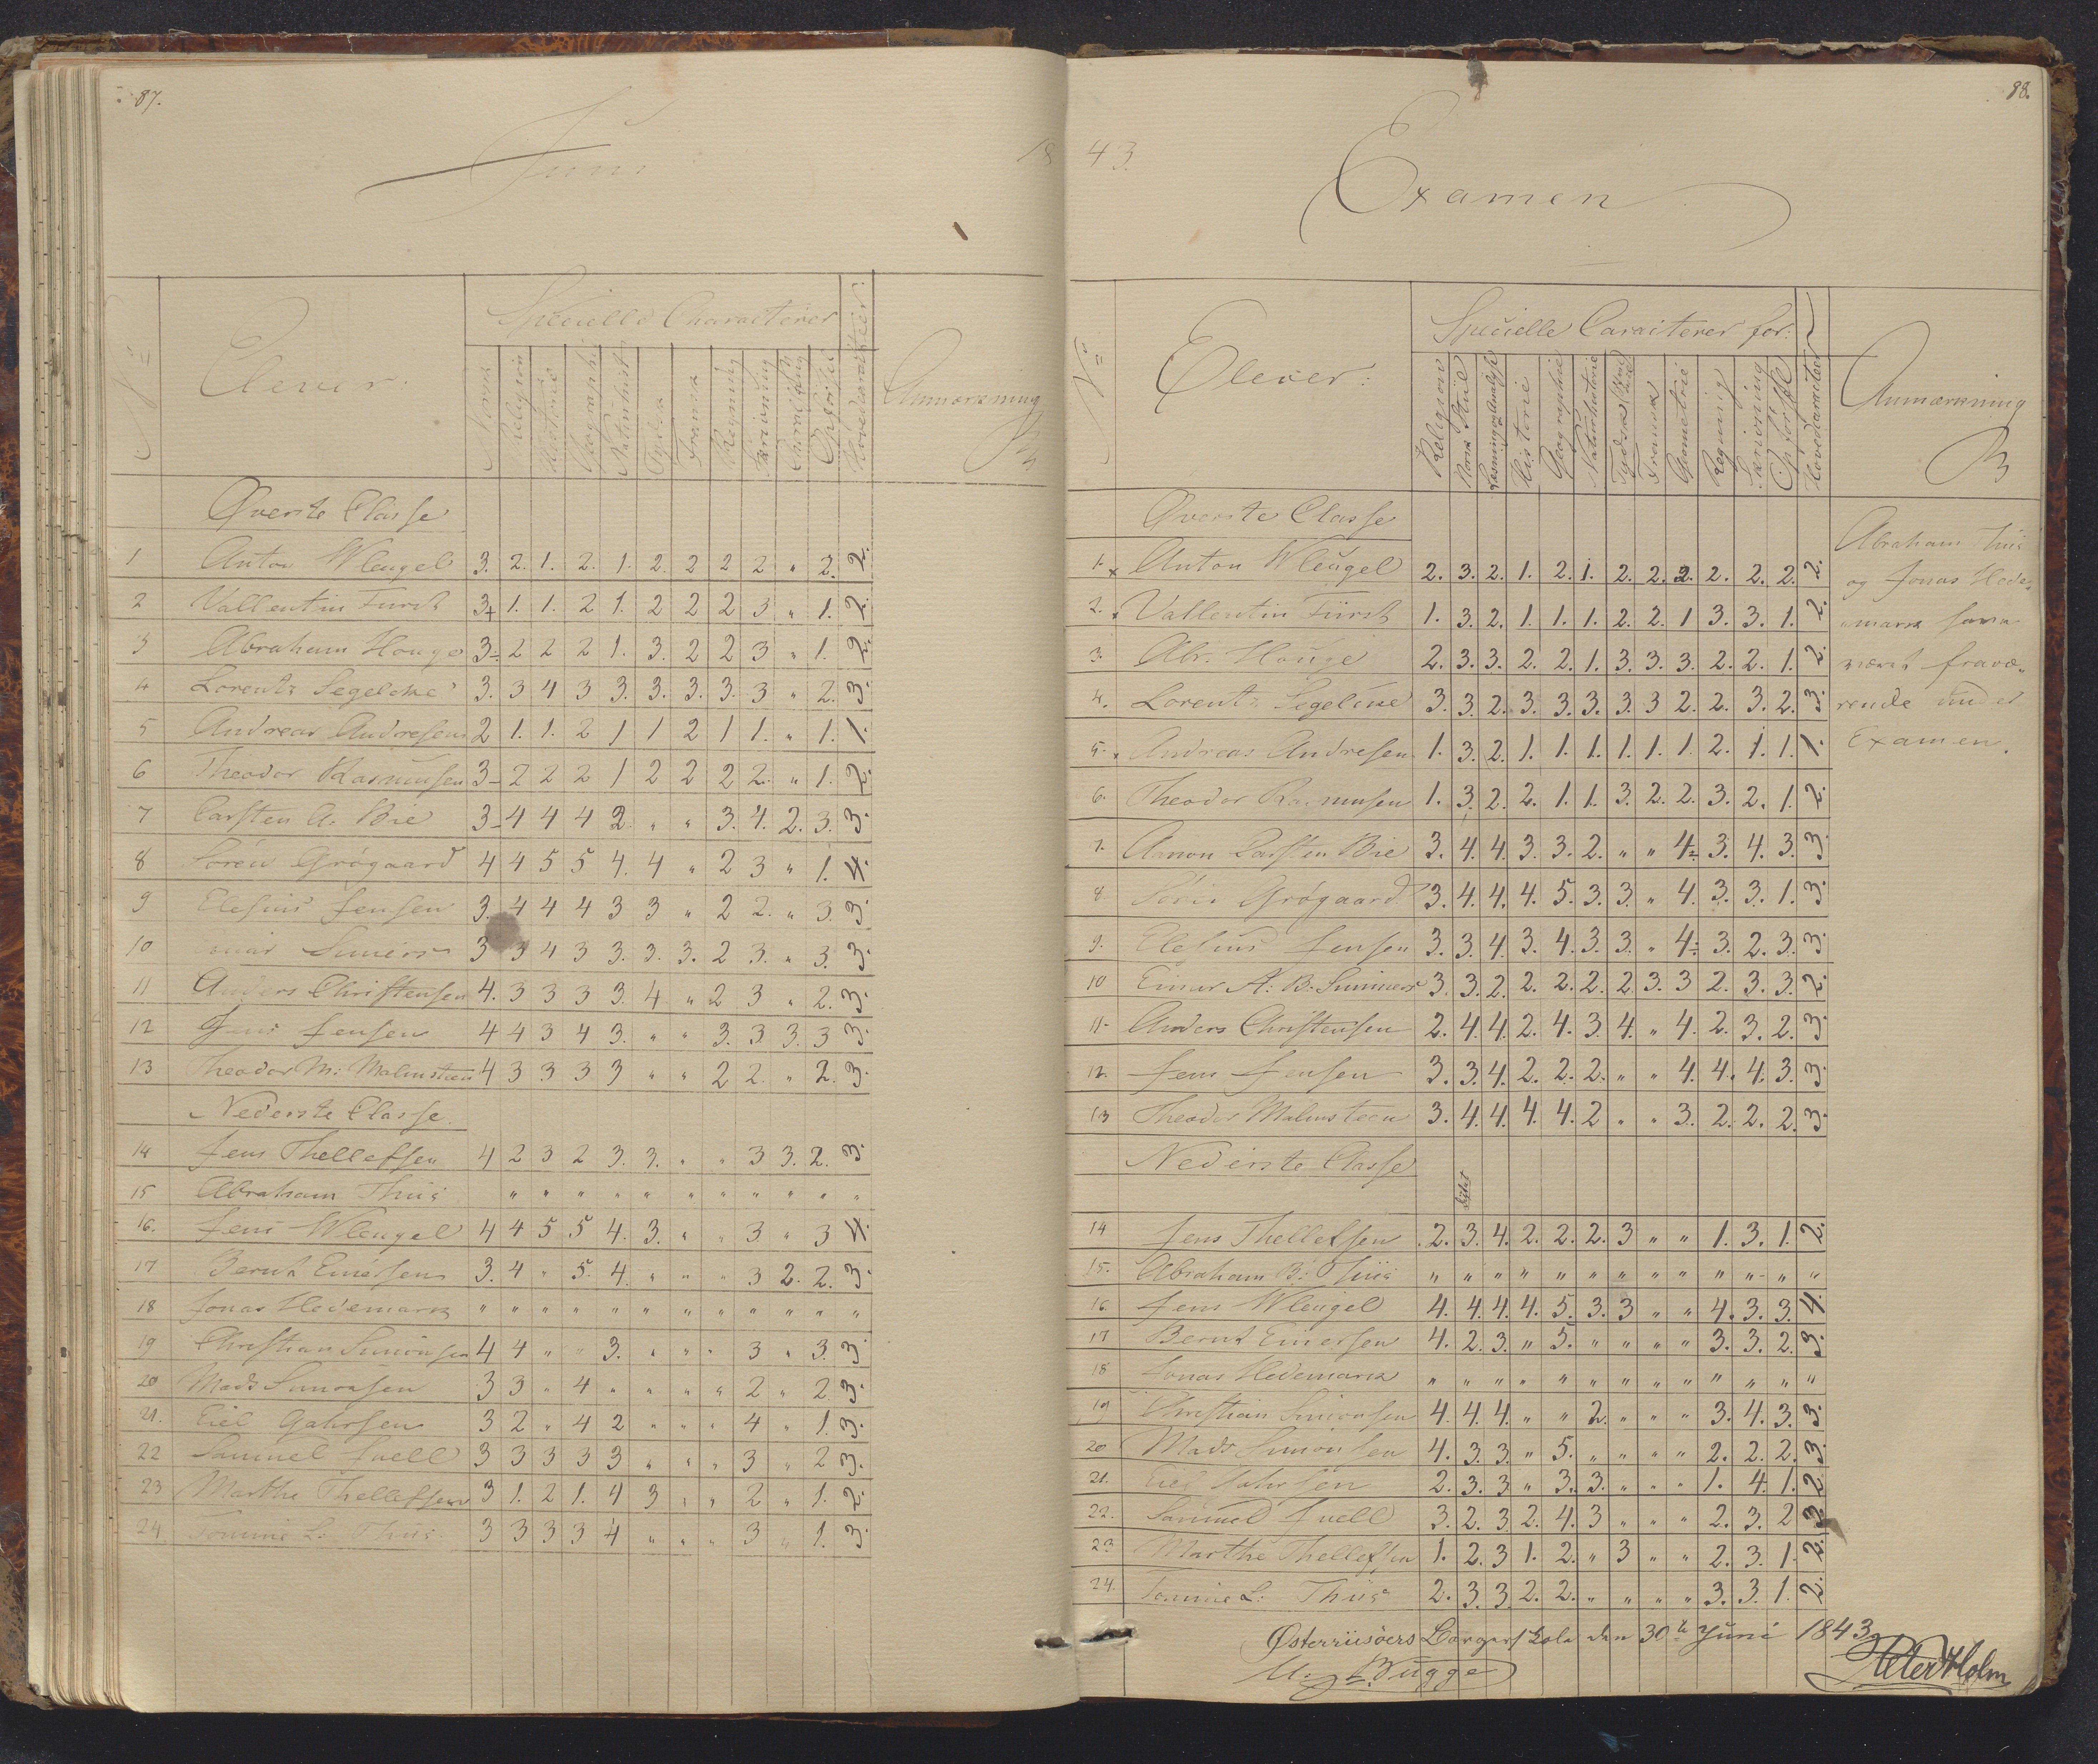 87.
Juni 18
No
Elever.
Specielle Characterer
Anmærkning
Norsk
Religion
Historie
Geographi
Naturhist
Tydsk
Fransk
Regning
Skrivning
Opførsel
Hovedcaracteer
Øverste Classe
1 Anton Wleugel 3. 2. 1. 2. 1. 2. 2 2 2 " 2. 2.
2 Vallentin Fürst 3+ 1. 1. 2 1. 2 2 2 3 " 1. 2.
3 Abraham Houge 3- 2 2 2 1. 3. 2 2 3 " 1. 2.
4 Lorentz Segelcke 3. 3 4 3 3. 3. 3. 3. 3 " 2. 3.
5 Andreas Andresen 2 1. 1. 2 1 1 2 1 1. " 1. 1.
6 Theodor Rasmusen 3- 2 2 2 1 2 2 2 2. " 1. 2.
7 Carsten A. Bie 3- 4 4 4 2 " " 3. 4. 2. 3. 3.
8 Sören Grögaard 4 4 5 5 4. 4 " 2 3 " 1. 4.
9 Elesius Jensen 3. 4 4 4 3 3 " 2 2. " 3. 3.
10 Simers 3 3 4 3 3. 3. 3. 2 3. " 3. 3.
11 Anders Christensen 4. 3 3 3 3. 4 " 2 3 " 2. 3.
12 Jens Jensen 4 4 3 4 3. " " 3. 3 3. 3 3.
13 Theodor M: Malmsteen 4 3 3 3 3 " " 2 2. " 2. 3.
Nederste Classe.
14 Jens Thellefsen 4 2 3 2 3. 3. " " 3 3. 2. 3.
15 Abraham Thiis " " " " " " " " " " "
16. Jens Wleugel 4 4 5 5 4. 3. " " 3 " 3 4.
17 Bernt Einersen 3. 4 " 5. 4. " " " 3 2. 2. 3.
18 Jonas Hedemark " " " " " " " " " " " "
19 Christian Simonsen 4 4 " " 3. " " " 3 " 3. 3.
20 Mads Simonsen 3 3 " 4 " " " " 2 " 2. 3.
21. Eiel Gahrsen 3 2 " 4 2 " " " 4 " 1. 3.
22 Samuel Juell 3 3 3 3 3 " " " 3 " 2 3.
23 Marthe Thellefsen 3 1. 2 1. 4 3 " " 2 " 1. 2.
24. Tomine L: Thiis 3 3 3 3 4 " " " 3 " 1. 3.
88.
43.
Examen
No
Elever:
Specielle Caracterer for:
Anmærkning
Religion
Norsk Stiil
Læsning og Analyse
Historie
Geographie
Naturhistorie
Tydsk
Fransk
Geometrie
Regning
Skrivning
Opførsel
Hovedcaracteer
Øverste Classe
1. x Anton Wleugel 2. 3. 2. 1. 2. 1. 2. 2. 2. 2. 2. 2. 2.
2. x Vallentin Fürst 1. 3. 2. 1. 1. 1. 2. 2. 1 3. 3. 1. 2.
3. Abr. Houge 2. 3. 3. 2. 2. 1. 3. 3. 3. 2. 2. 1. 2.
4. Lorentz Segelcke 3. 3. 2. 3. 3. 3. 3. 3 2. 2. 3. 2. 3.
5. x Andreas Andresen 1. 3. 2. 1. 1. 1. 1. 1. 1. 2. 1. 1. 1.
6. Theodor Rasmusen 1. 3. 2. 2. 1. 1. 3. 2. 2. 3. 2. 1. 2.
7. Aanon Carsten Bie 3. 4. 4. 3. 3. 2. " " 4- 3. 4. 3. 3.
8. Sören Grögaard 3. 4. 4. 4. 5. 3. 3. " 4. 3. 3. 1. 3.
9. Elesius Jensen 3. 3. 4. 3. 4. 3. 3. " 4- 3. 2. 3. 3.
10 Einar A: B: Simers 3. 3. 2. 2. 2. 2. 2. 3. 3 2. 3. 3. 2.
11. Anders Christensen 2. 4. 4. 2. 4. 3. 4. " 4. 2. 3. 2. 3.
12. Jens Jensen 3. 3. 4. 2. 2. 2. " " 4. 4. 4. 3. 3.
13 Theodor Malmsteen 3. 4. 4. 4. 4. 2 " " 3. 2. 2. 2. 3.
Nederste Classe
14 Jens Thellefsen 2. 3. 4. 2. 2. 2. 3 " " 1. 3. 1. 2.
15. Abraham B: Thiis " " " " " " " " " " " " "
16 Jens Wleugel 4. 4. 4. 4. 5. 3. 3 " " 4. 3. 3. 4.
17 Bernt Einersen 4. 2. 3. " 5. " " " " 3. 3. 2. 3.
18 Jonas Hedemark " " " " " " " " " " " " "
19 Christian Simonsen 4. 4. 4. " " 2. " " " 3. 4. 3. 3.
20 Mads Simonsen 4. 3. 3. " 5. " " " " 2. 2. 2. 3.
21. Eiel Gahrsen 2. 3. 3 " 3. 3. " " " 1. 4. 1. 2.
22. Samuel Juell 3. 2. 3. 2. 4. 3 " " " 2. 3. 2 3.
23 Marthe Thellefsen 1. 2. 3 1. 2. " 3 " " 2. 3. 1. 2.
24. Tomine L: Thiis 2. 3. 3. 2. 2. " " " " 3. 3. 1. 2.
Abraham Thiis
og Jonas Hede,
mark have
været fravæ,
rende under
Examen.
Østerriisöers Borgerskole den 30te Juni 1843
Bugge
Peter Holm